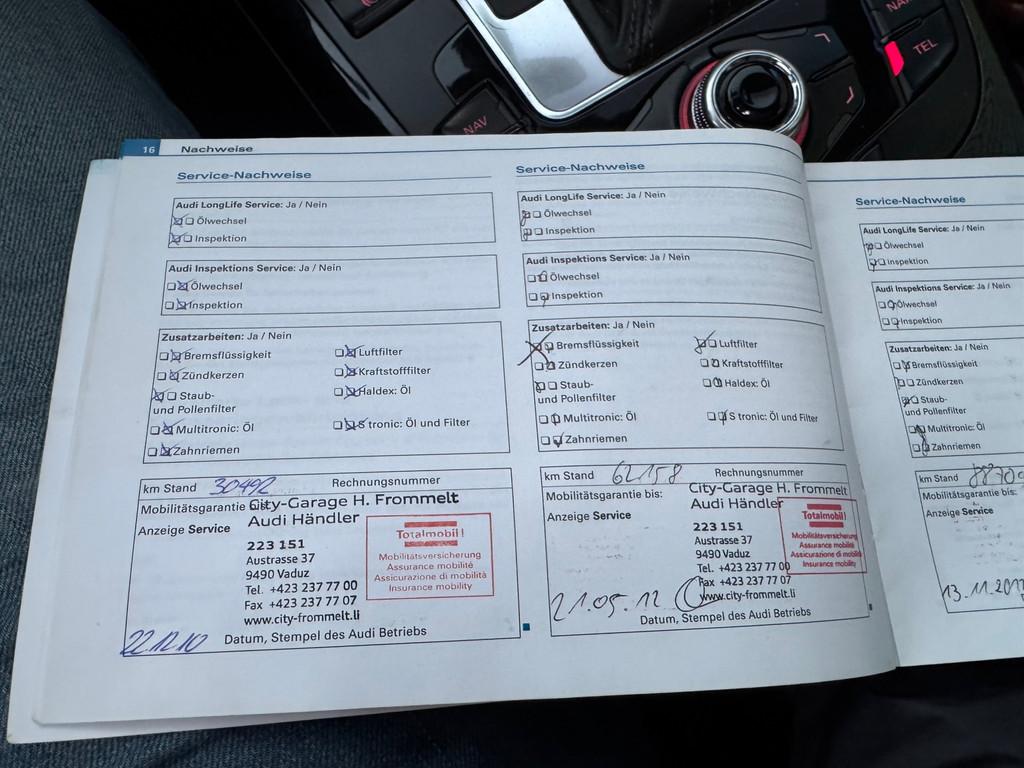 NAV
TEL
16 Nachweise
Service-Nachweise
Audi LongLife Service: Ja / Nein
Ölwechsel
Inspektion
Audi Inspektions Service: Ja / Nein
Ölwechsel
Inspektion
Zusatzarbeiten: Ja / Nein
Bremsflüssigkeit
Luftfilter
Zündkerzen
Kraftstofffilter
Staub-
und Pollenfilter
Haldex: Öl
Multitronic: Öl
S tronic: Öl und Filter
Zahnriemen
km Stand 30492 Rechnungsnummer
Mobilitätsgarantie
City-Garage H. Frommelt
Anzeige Service
Audi Händler
223 151
Austrasse 37
9490 Vaduz
Tel. +423 237 77 00
Fax +423 237 77 07
www.city-frommelt.li
Totalmobil!
Mobilitätsversicherung
Assurance mobilité
Assicurazione di mobilità
Insurance mobility
22.12.10
Datum, Stempel des Audi Betriebs
Service-Nachweise
Audi LongLife Service: Ja / Nein
Ölwechsel
Inspektion
Audi Inspektions Service: Ja / Nein
Ölwechsel
Inspektion
Zusatzarbeiten: Ja / Nein
Bremsflüssigkeit
Luftfilter
Zündkerzen
Kraftstofffilter
Staub-
und Pollenfilter
Haldex: Öl
Multitronic: Öl
S tronic: Öl und Filter
Zahnriemen
km Stand 62158 Rechnungsnummer
Mobilitätsgarantie bis:
City-Garage H. Frommelt
Anzeige Service
Audi Händler
223 151
Austrasse 37
9490 Vaduz
Tel. +423 237 77 00
Fax +423 237 77 07
www.city-frommelt.li
Totalmobil!
Mobilitätsversicherung
Assurance mobilité
Assicurazione di mobilità
Insurance mobility
21.05.12
Datum, Stempel des Audi Betriebs
Service-Nachweise
Audi LongLife Service: Ja / Nein
Ölwechsel
Inspektion
Audi Inspektions Service: Ja / Nein
Ölwechsel
Inspektion
Zusatzarbeiten: Ja / Nein
Bremsflüssigkeit
Zündkerzen
Staub-
und Pollenfilter
Multitronic: Öl
Zahnriemen
km Stand
Mobilitätsgarantie bis:
Anzeige Service